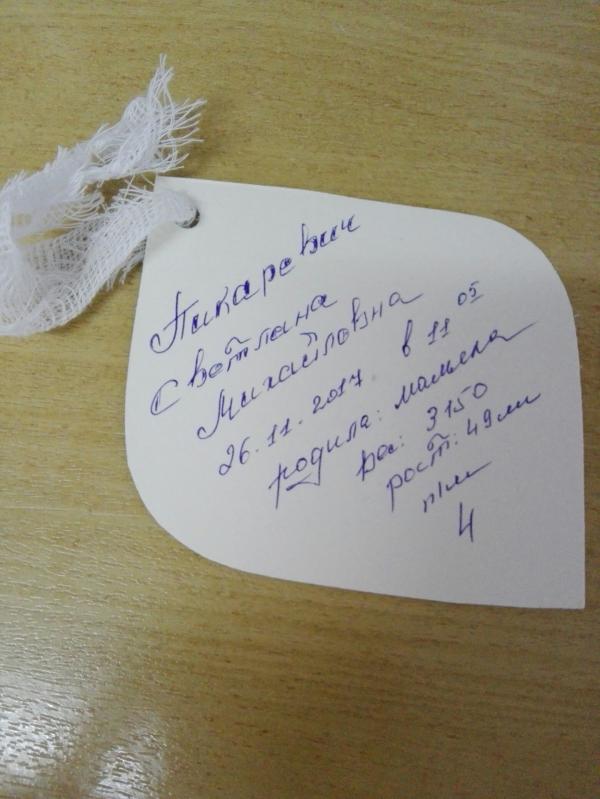 Пикаревич
Светлана
Михайловна
26.11.2017 в 11 05
родила: мальчика
вес: 3150
рост: 49 см
п/м
4